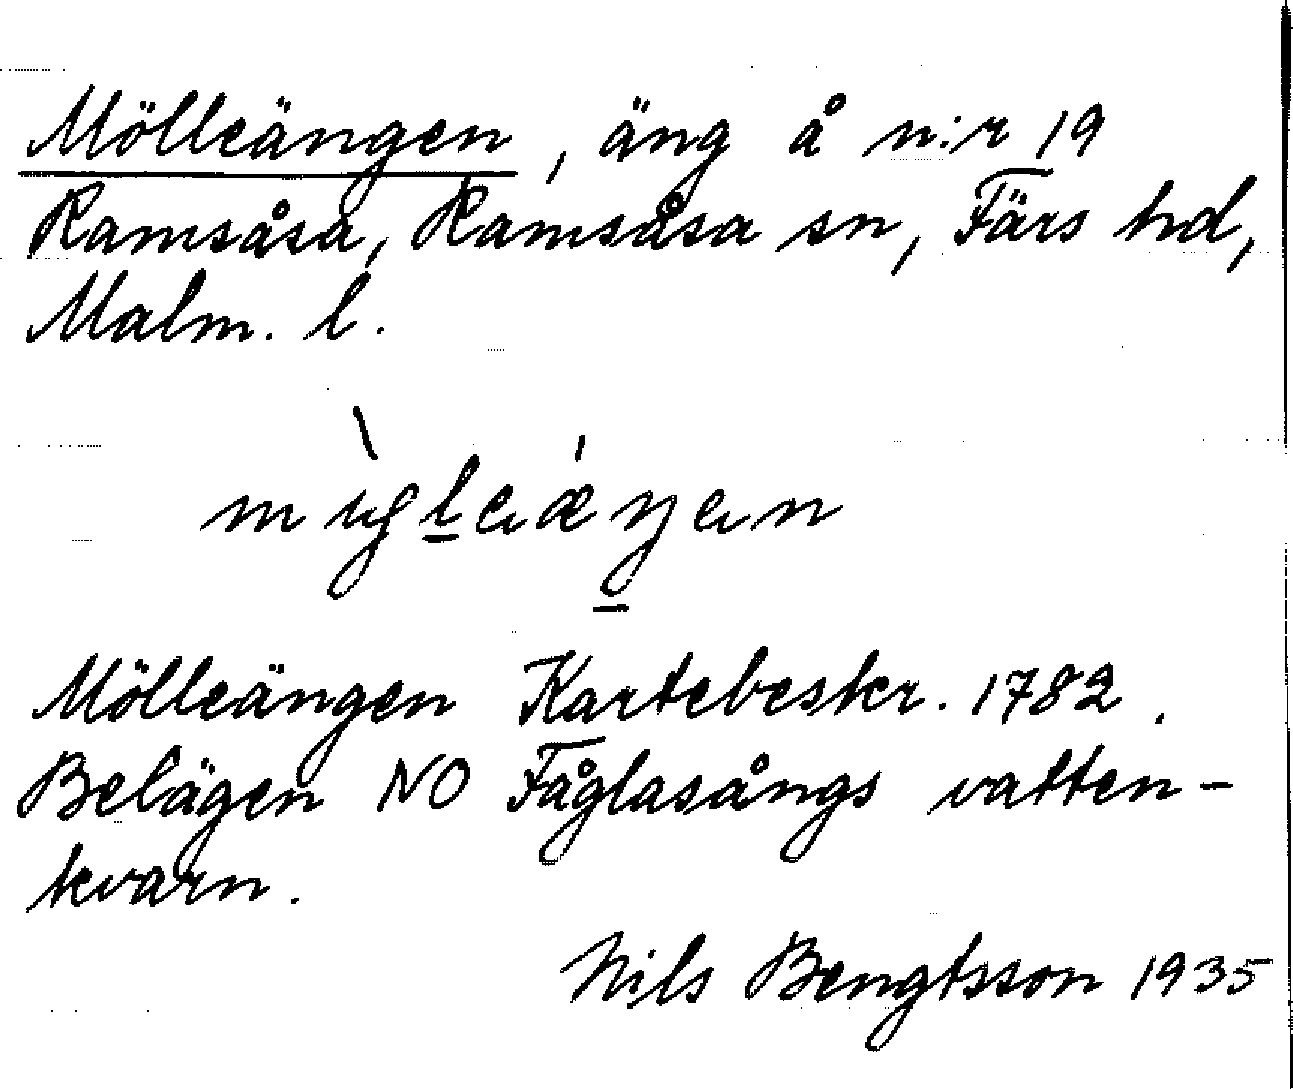 Mölleängen, äng å n:r 19
Ramsåsa, Ramsåsa sn, Färs hd,
Malm. l.
Mölleängen Kartebeskr. 1782.
Belägen NO Fåglasångs vatten-
kvarn.
Nils Bengtsson 1935